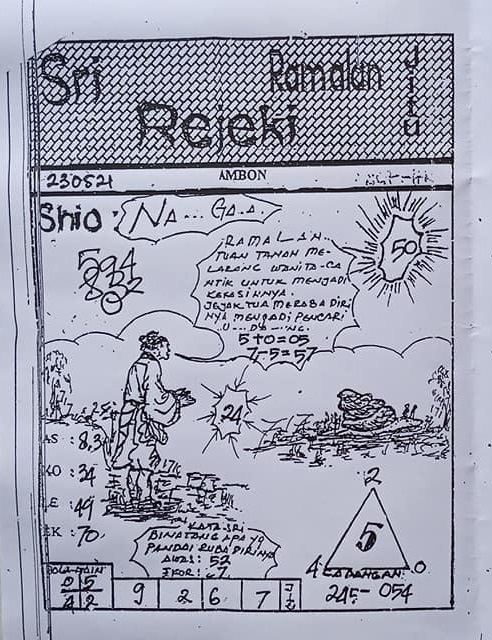 Sri
Ramalan
Jitu
Rejeki
AMBON
230521
Shio : NA... GA..
50
594
832
0
RAMALAN..
TUAN TANAH ME-
LARANG WANITA CA
NTIK UNTUK MENJADI
KEKASIHNYA.
JEJAKTUA MERABA DIRI
NYA MENJADI PENCARI
U...DA...NG.
5+0=05
7-5=57
24
AS : 8,3
KO : 34
LE : 49
EK : 70
KATA SRI
BINATANG APA YG
PANDAI RUBA DIRINYA
AWAS : 52
EKOR : 7
2
5
4
0
CADANGAN:
245 - 054
BOLA MAIN
0 5
4 2
9 2 6 7